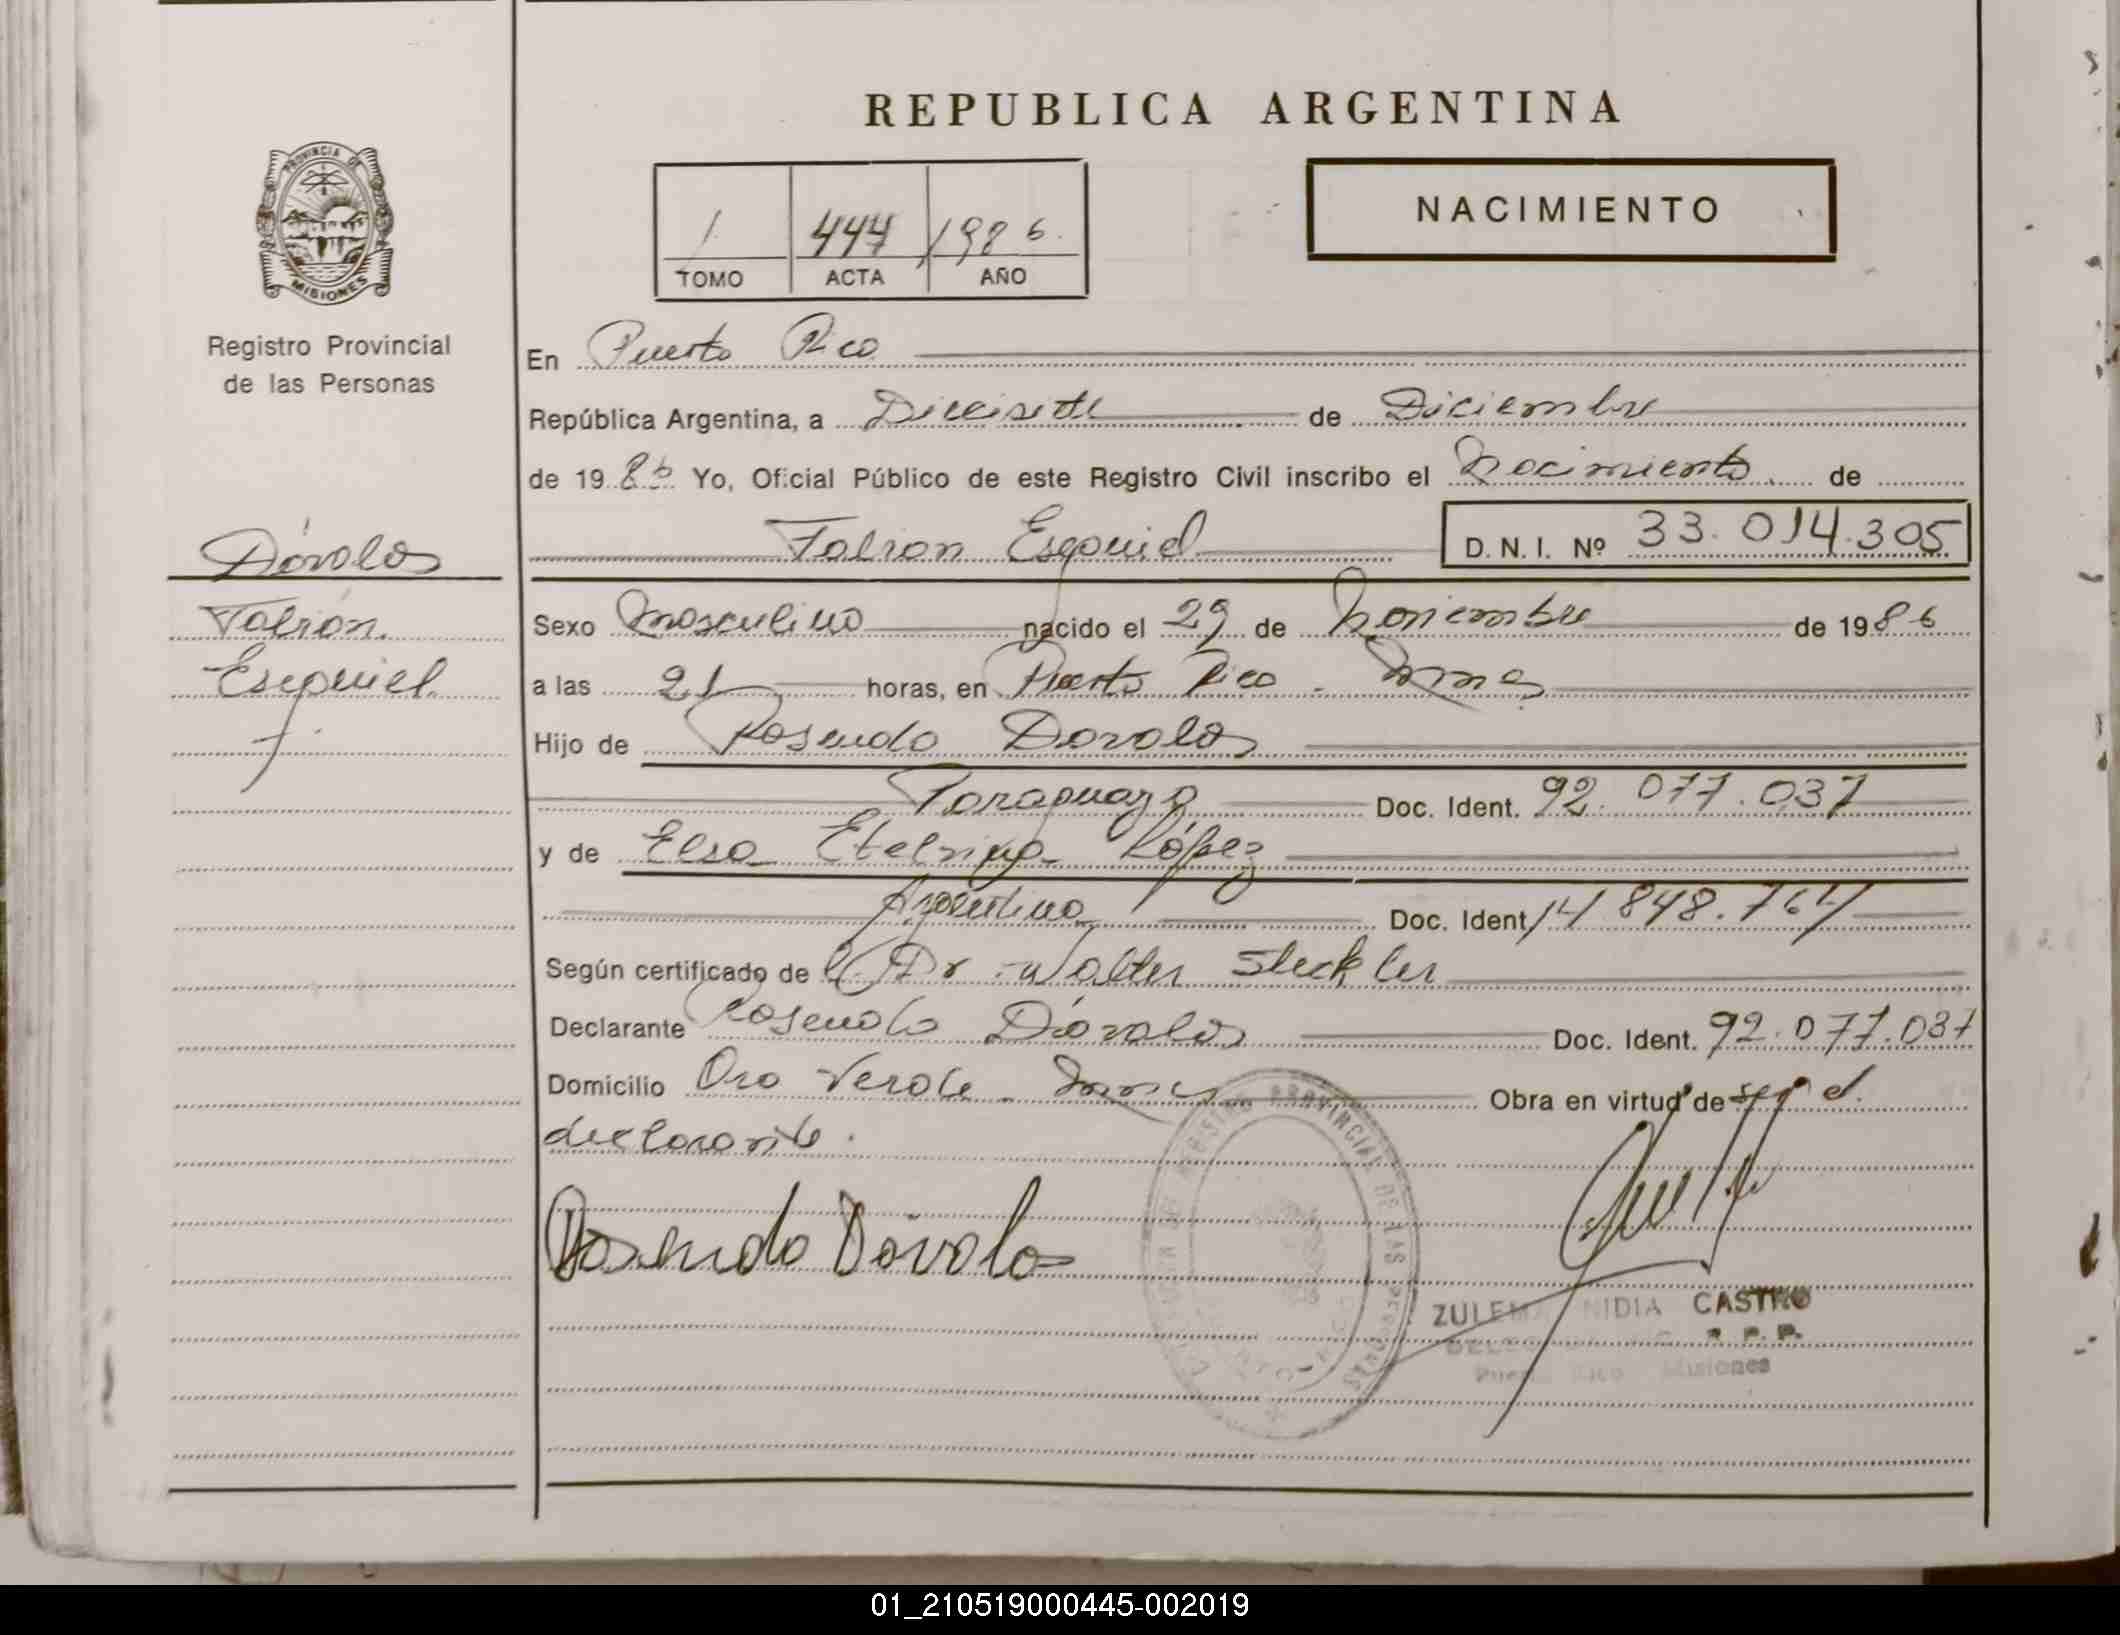 REPUBLICA ARGENTINA
PROVINCIA DE
MISIONES
Registro Provincial
de las Personas
1
444
1986
TOMO
ACTA
AÑO
NACIMIENTO
En Puerto Rico
República Argentina, a Diecisiete de Diciembre
de 1986 Yo, Oficial Público de este Registro Civil inscribo el Nacimiento de
Fabian Esequiel
D.N.I. Nº 33.014.305
Dávalos
Fabián
Esequiel
Sexo Masculino nacido el 29 de Noviembre de 1986
a las 21 horas, en Puerto Rico - Mnes
Hijo de Rosendo Davalos
Paraguayo Doc. Ident. 92.077.037
y de Elsa Etelvina López
Argentina Doc. Ident. 14.848.764
Según certificado de el Dr. Walter Steckler
Declarante Rosendo Dávalos Doc. Ident. 92.077.037
Domicilio Oro Verde - Mnes Obra en virtud de ser el
declarante.
Rosendo Dávalo
REGISTRO PROVINCIAL DE LAS PERSONAS
ZULEMA NIDIA CASTRO
R. P. P.
Puerto Rico Misiones
01_210519000445-002019